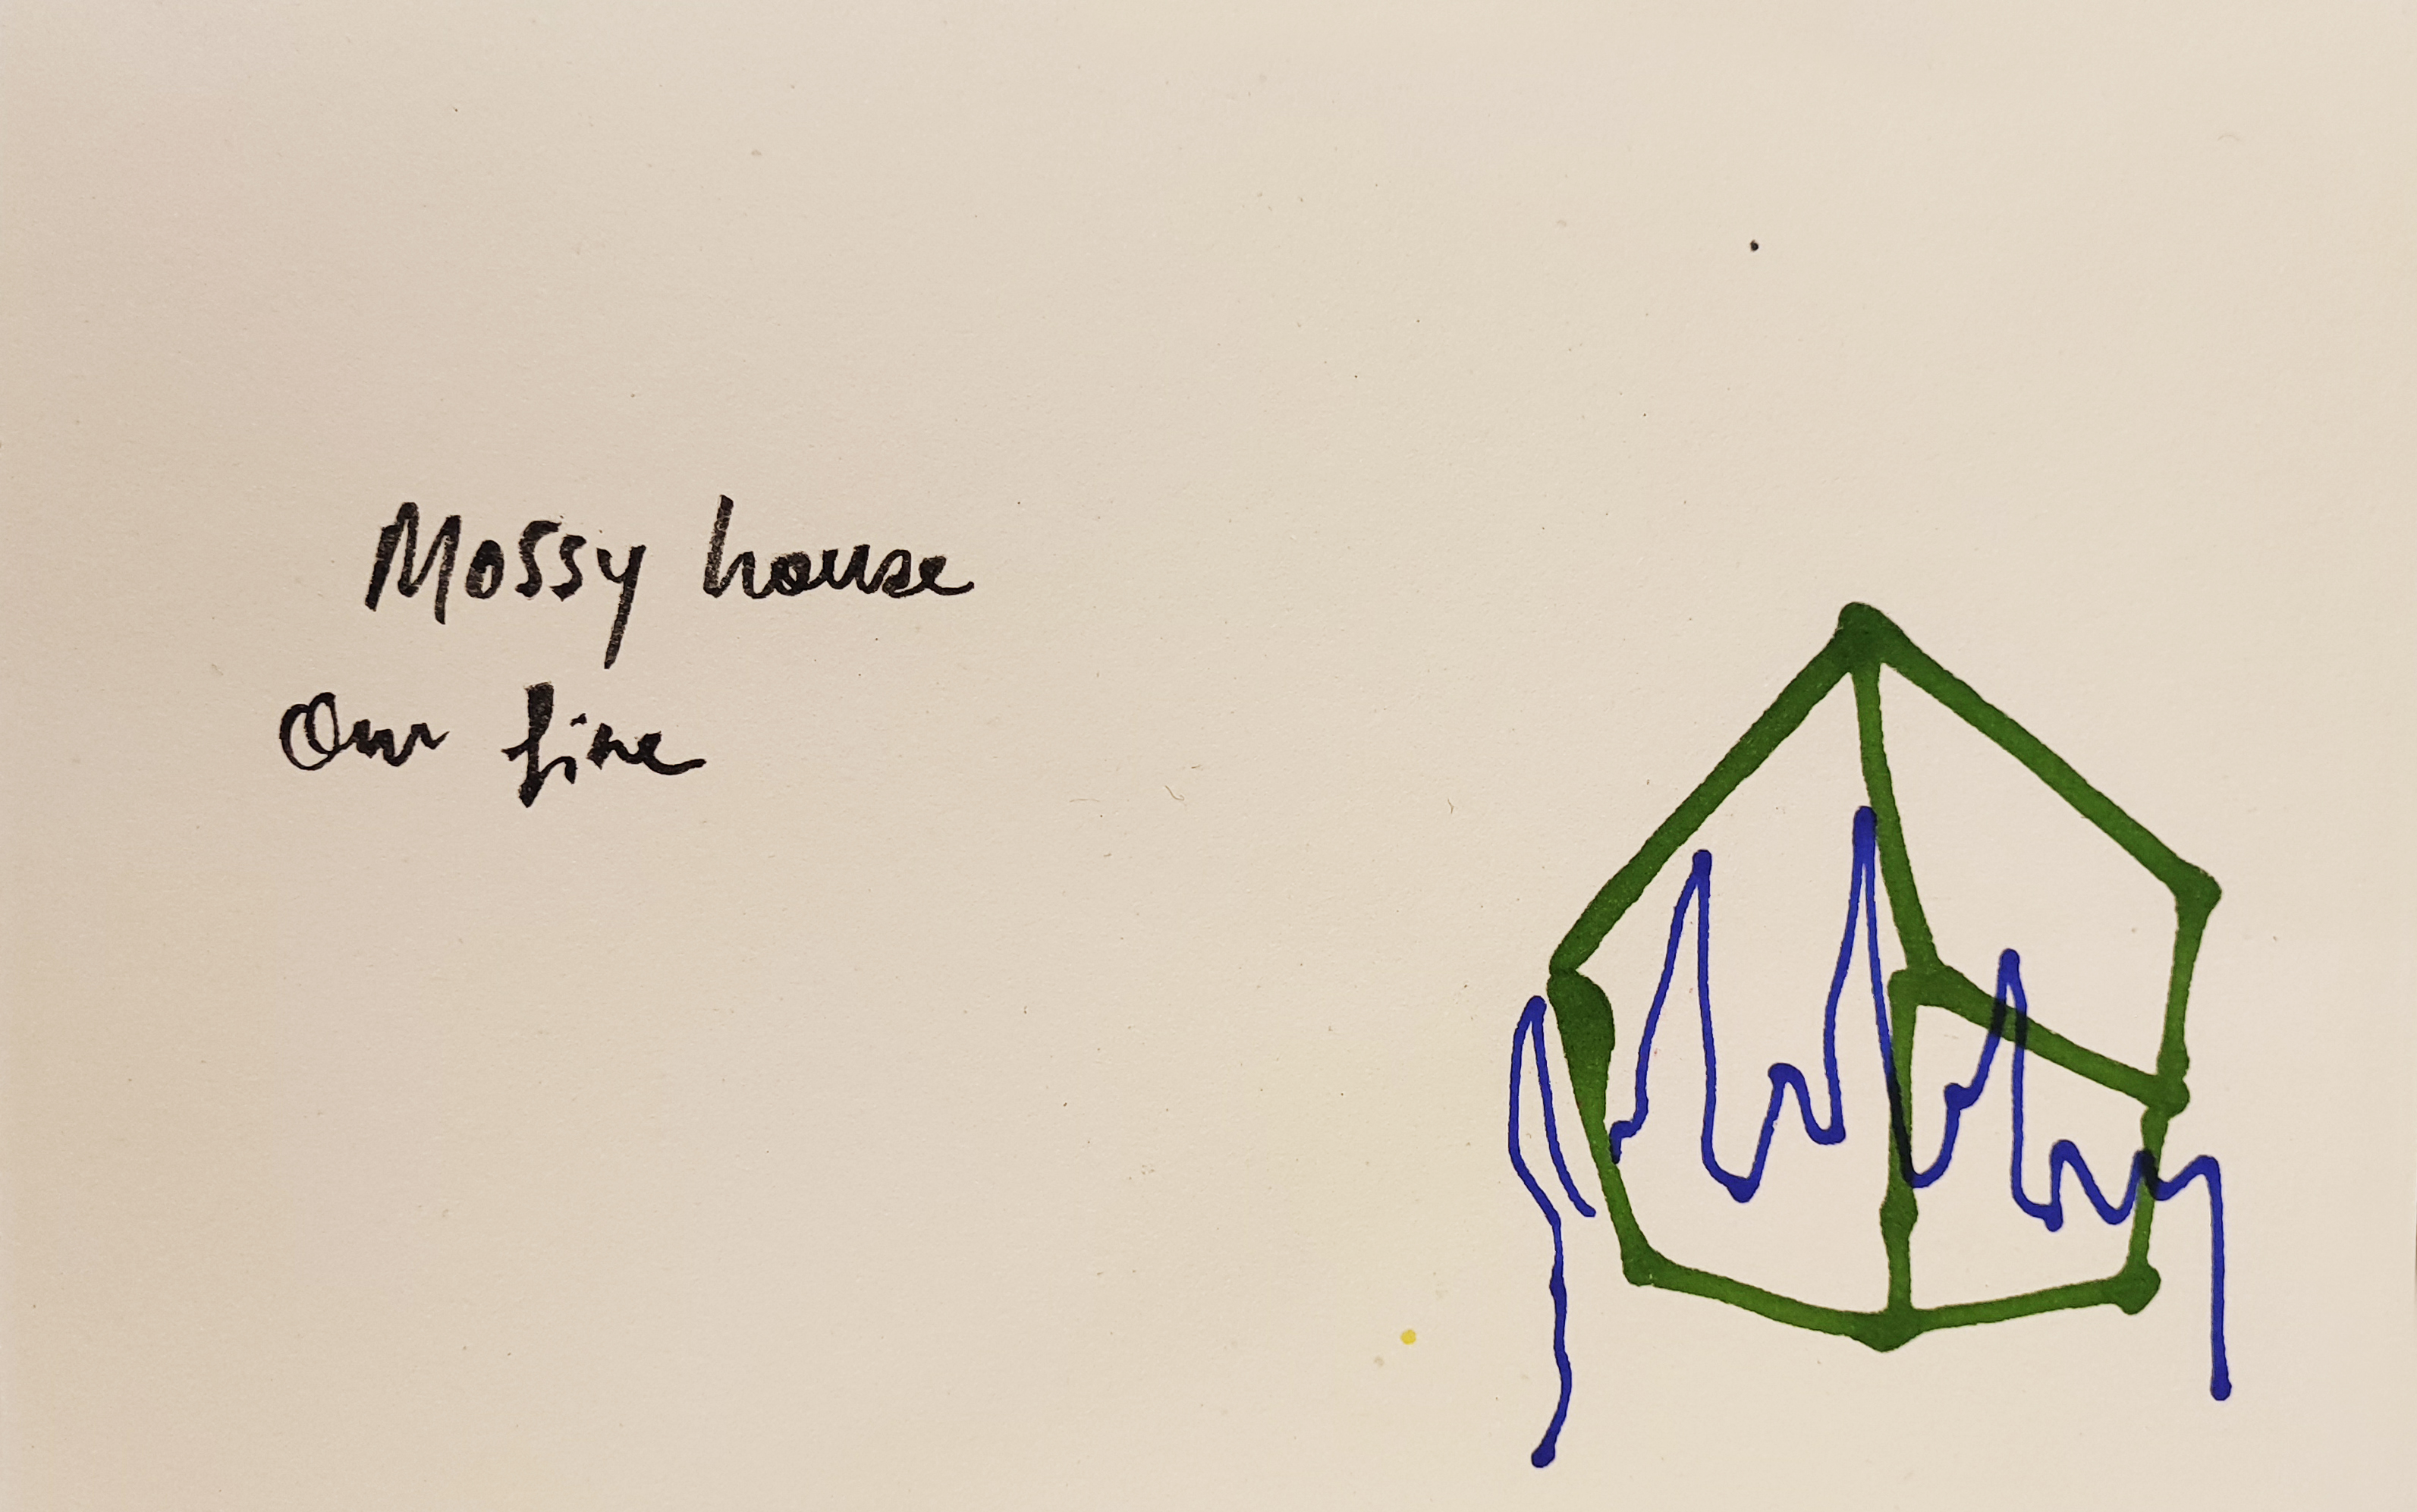 Mossy house
Our fire